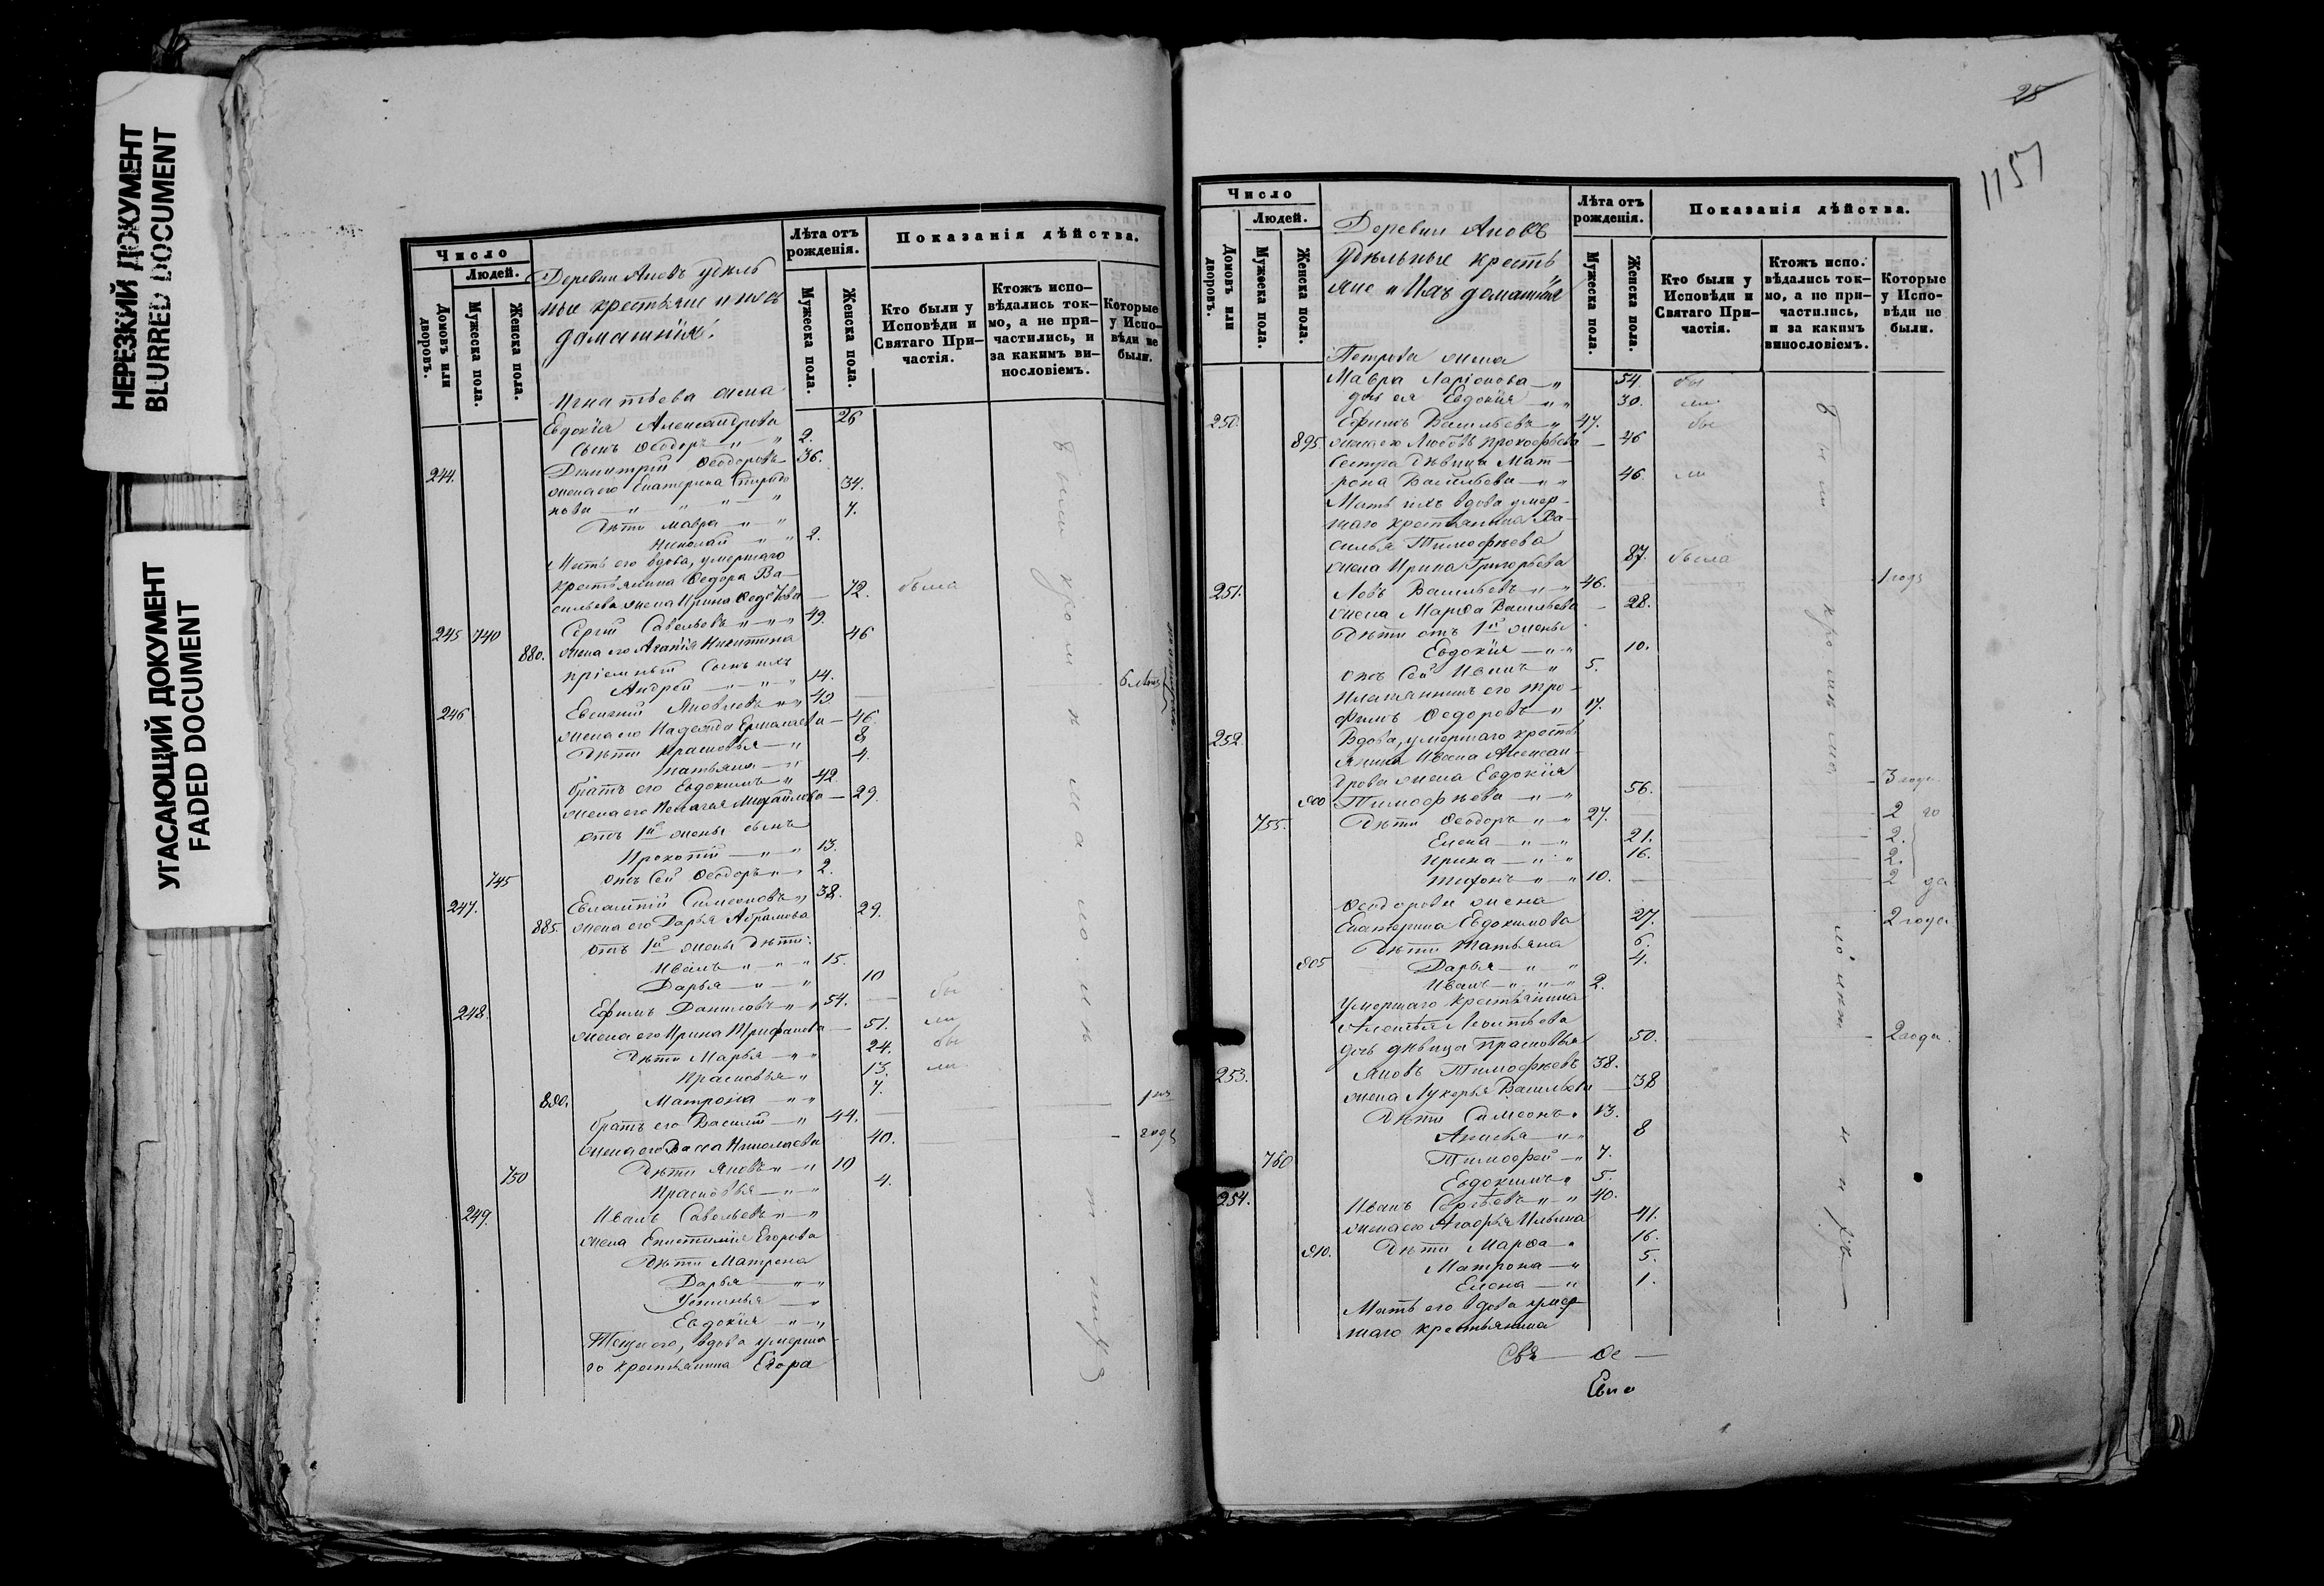 НЕРЕЗКИЙ ДОКУМЕНТ
BLURRED DOCUMENT
УГАСАЮЩИЙ ДОКУМЕНТ
FADED DOCUMENT
Число
Людей.
Домовъ или дворовъ.
Мужеска пола.
Женска пола.
Лѣта отъ рожденія.
Мужеска пола.
Женска пола.
Показанія дѣйства.
Кто были у Исповѣди и Святаго При-частія.
Ктожъ испо-вѣдались ток-мо, а не при-частились, и за какимъ ви-нословіемъ.
Которые у Испо-вѣди не были.
домашнія.
Игнатьева жена
Евдокія Александрова 26
Сынъ Ѳеодоръ 2.
244. Димитрій Ѳеодоровъ 36.
жена его Екатерина
нова 34.
Дѣти Мавра 7.
Николай 2.
Мать его вдова, умершаго
крестьянина Ѳедора Ва-
сильева жена Ирина 72. была
245 740 Сергій Савельевъ 49.
880. жена его Агапія Никитина 46
пріемный Сынъ ихъ
Андрей 14.
246 Евсигній Яковлевъ 49
жена его Надежда Ермолаева 46.
Дѣти Прасковья 8
Татьяна 4.
братъ его Евдокимъ 42.
жена его Пелагея Михайлова 29.
отъ 1й жены сынъ
Прокопій 13.
745 отъ сей Ѳеодоръ 2.
247. Евлампій Симеоновъ 38.
885. жена его Дарья Абрамова 29.
отъ 1й жены дѣти:
Иванъ 15.
Дарья 10
248. Ефимъ Даниловъ 54. бы
жена его Ирина Трифанова 51. ли
Дѣти Марья 24. бы
Прасковья 13. ли
890. Матрона 7.
братъ его Василій 44. 1
жена его Васса Николаева 40. годъ
750 Дѣти Яковъ 10
Прасковья 4.
249. Иванъ Савельевъ
жена Епистимія Егорова
Дѣти Матрена
Дарья
Устинья
Евдокія
Теща его, вдова умерша-
го крестьянина Егора
28
1157
Число
Людей.
Домовъ или дворовъ.
Мужеска пола.
Женска пола.
Деревни Яковъ
удѣльные кресть
яне и Ихъ домашнія
Лѣта отъ рожденія.
Мужеска пола.
Женска пола.
Показанія дѣйства.
Кто были у Исповѣди и Святаго При-частія.
Ктожъ испо-вѣдались ток-мо, а не при-частились, и за какимъ винословіемъ.
Которые у Испо-вѣди не были.
Петрова жена
Мавра Ларіонова 54. бы
дочь ея Евдокія 30. ли
250. Ефимъ Васильевъ 47. бы
895. жена его Любовь Прокофьева 46
Сестра дѣвица Мат-
рона Васильева 46. ли
Мать ихъ вдова умер-
шаго крестьянина Ва-
силья Тимофѣева
жена Ирина Григорьева 87. была
251. Левъ Васильевъ 46. 1 годъ
жена Марѳа Васильева 28.
Дѣти отъ 1й жены
Евдокія 10.
отъ Сей Иванъ 5.
Племянникъ его Тро-
фимъ Ѳедоровъ 17.
252. Вдова, умершаго кресть
янина Ивана Алексан-
дрова жена Евдокія
900 Тимофѣева 56. 3 года
755. Дѣти Ѳеодоръ 27. 2 го
Елена 21. 2.
Ирина 16. 2.
Тихонъ 10. 2 да
Ѳеодорова жена
Екатерина Евдокимова 27. 2 года
Дѣти Татьяна 6.
905 Дарья 4.
Иванъ 2.
Умершаго крестьянина
Алексѣя Леонтьева
дочь дѣвица Прасковья 50. 2 года
253. Яковъ Тимофѣевъ 38.
жена Лукерья Васильева 38
Дѣти Симеонъ 13.
Акилина 8
760 Тимофей 7.
Евдокимъ 5.
254. Иванъ Сергѣевъ 40.
жена его Агафья Ильина 41.
910. Дѣти Марѳа 16.
Матрона 5.
Елена 1.
Мать его вдова умер
шаго крестьянина